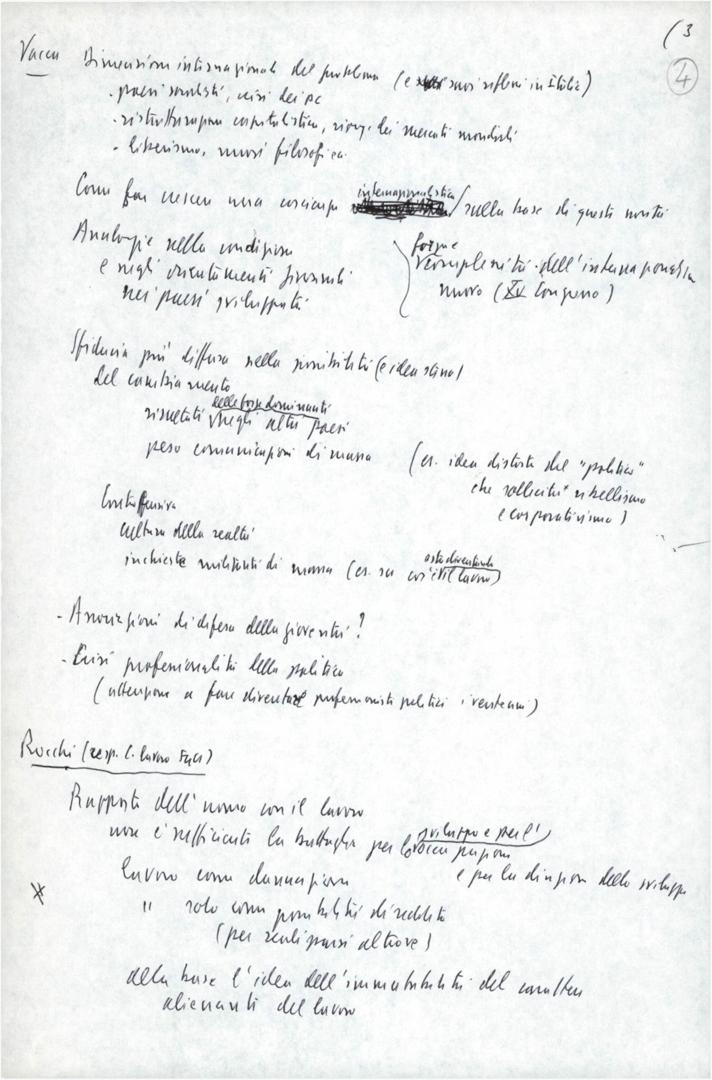 (3
4
Vacca Dimensioni internazionali del problema (e suoi riflessi in Italia)
- paesi socialisti, crisi dei pc
- ristrutturazione capitalistica, dei mercati mondiali
- liberismo, nuovi filosofi ecc.
Come far crescere una coscienza internazionalistica / sulla base di queste novità
Analogie nella condizione
e negli orientamenti giovanili
nei paesi sviluppati
forme
complessità dell'internazionalismo
nuovo (XV Congresso)
Sfiducia più diffusa nella possibilità (e idea stessa)
del cambiamento
delle forze dominanti
risultati negli altri paesi
peso comunicazioni di massa
(es. idea distorta del "politico"
che sollecita ribellismo
e corporativismo)
Controffensiva
cultura della realtà
inchieste militanti di massa (es. su cos'è il lavoro)
sta diventando
- Associazioni di difesa della gioventù?
- Crisi professionalità della politica
(attenzione a fare diventare professionisti politici i ventenni)
Rocchi (resp. C. lavoro FGCI)
Rapporto dell'uomo con il lavoro
sviluppo e per l'
non è sufficiente la battaglia per lo occupazione
e per la direzione dello sviluppo
lavoro come dannazione
" solo come possibilità di reddito
(per realizzarsi altrove)
alla base l'idea dell'immutabilità del carattere
alienante del lavoro